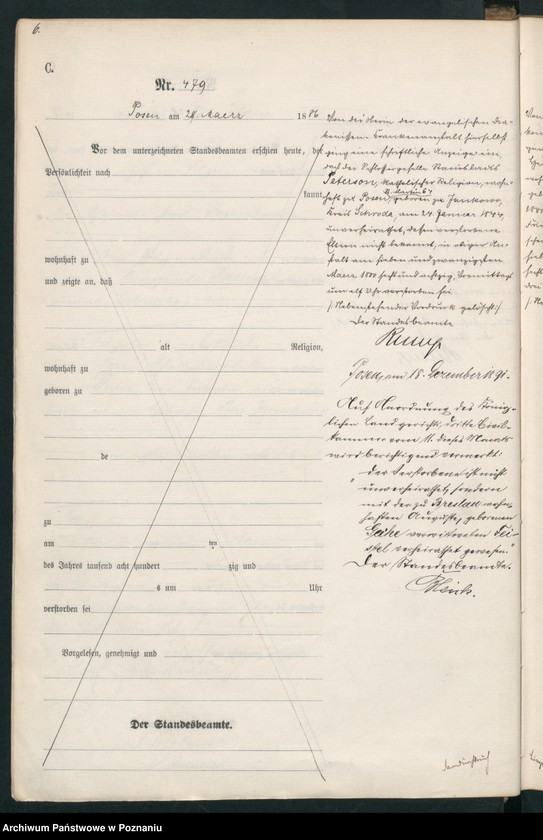 6.
C.
Nr. 479
Posen am 28 Maerz 1886
Vor dem unterzeichneten Standesbeamten erschien heute, der
Persönlichkeit nach
kannt,
wohnhaft zu
und zeigte an, daß
alt Religion,
wohnhaft zu
geboren zu
de
zu
am ten
des Jahres tausend acht hundert zig und
s um Uhr
verstorben sei
Vorgelesen, genehmigt und
Der Standesbeamte.
Von der Oberin der evangelischen Dia-
konissen Krankenanstalt hierselbst
ging eine schriftliche Anzeige ein,
daß der Schlossergeselle Stanislaus
Peterson, katholischer Religion, wohn-
haft zu Posen, St. Martin 64, geboren zu Jankowo,
Kreis Schroda, am 24. Januar 1844,
unverheirathet, dessen verstorbene
Eltern nicht bekannt, in obiger An-
stalt am sieben und zwanzigsten
Maerz 1800 sechs und achtzig, Vormittags
um elf Uhr verstorben sei
/: Nebenstehender Vordruck gelöscht :/
Der Standesbeamte
Posen, am 18. Dezember 1891.
Auf Anordnung des König-
lichen Landgerichts, dritte Civil-
kammer vom 11. dieses Monats
wird berichtigend vermerkt:
"Der Verstorbene ist nicht
unverheirathet, sondern
mit der zu Breslau wohn-
haften Auguste, geborenen
verwittweten
verheirathet gewesen."
Der Standesbeamte.
Archiwum Państwowe w Poznaniu